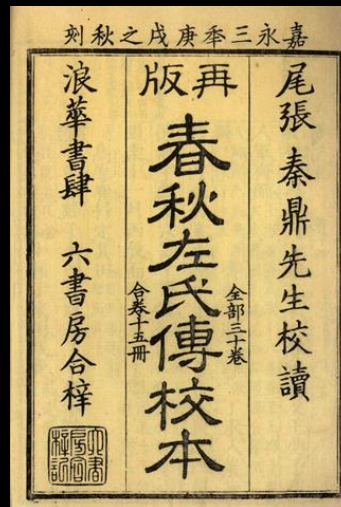 嘉永三年庚戌之秋刻
尾張 秦鼎先生校讀
再版
春秋左氏傳校本
全部三十巻
合巻十五冊
浪華書肆 六書房合梓